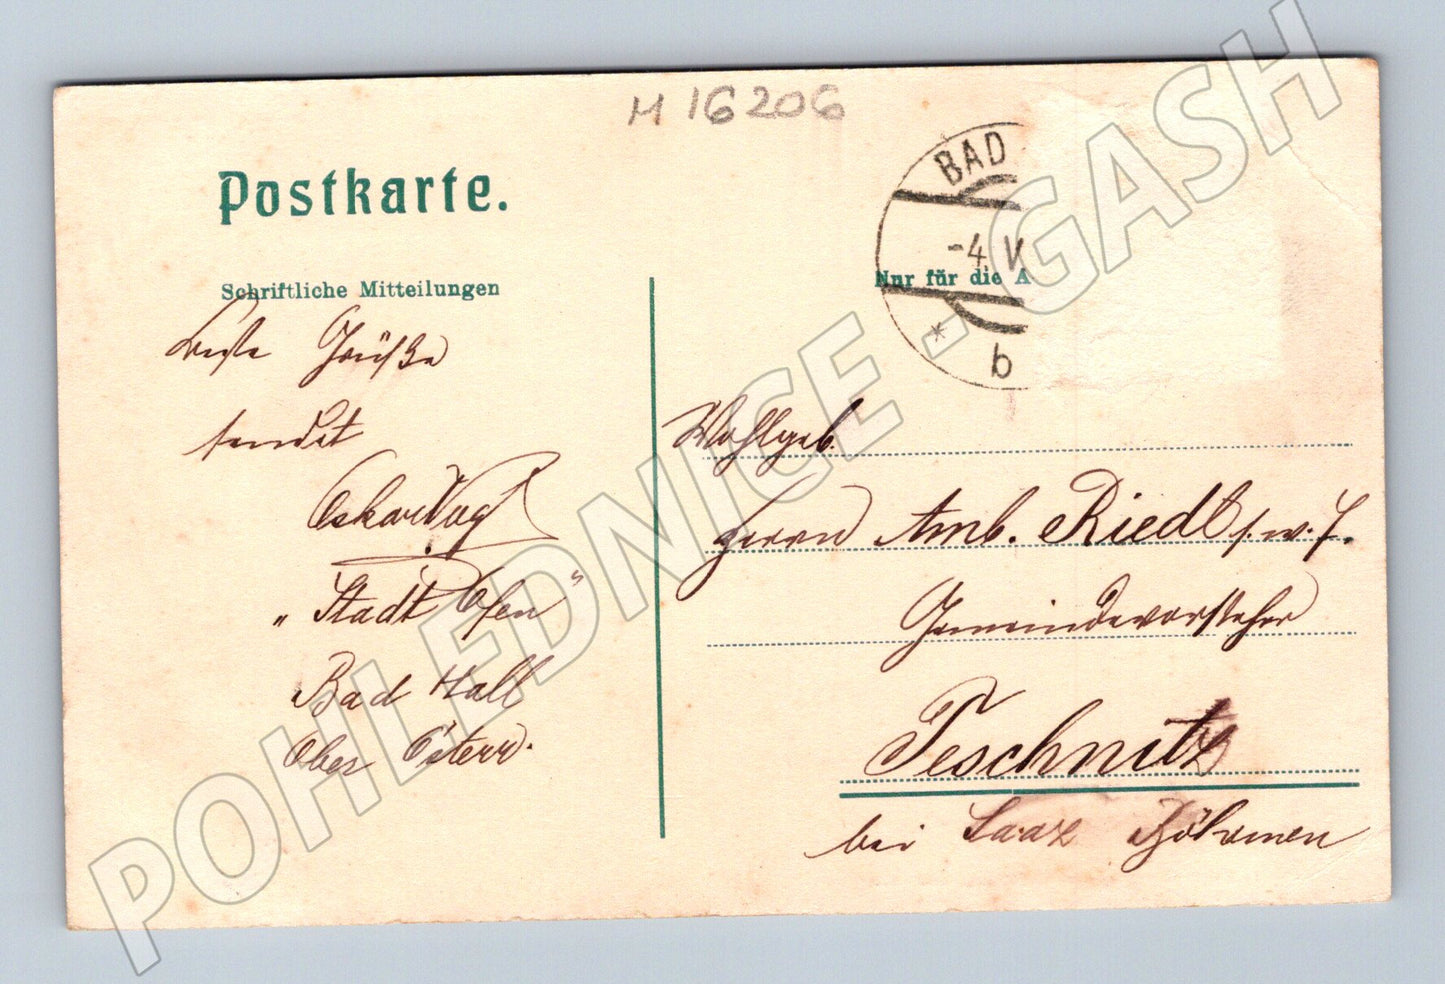 M 16206
Postkarte.
BAD
-4. V
Nur für die A
b
Schriftliche Mitteilungen
Beste Grüße
sendet
Oskar Vogt
"Stadt Ofen"
Bad Hall
Ober Österr.
Wohlgeb.
Herrn Amb. Riedl s. w. G.
Gemeindevorsteher
Teschnitz
bei Saaz Böhmen
POHLEDNICE - GASH